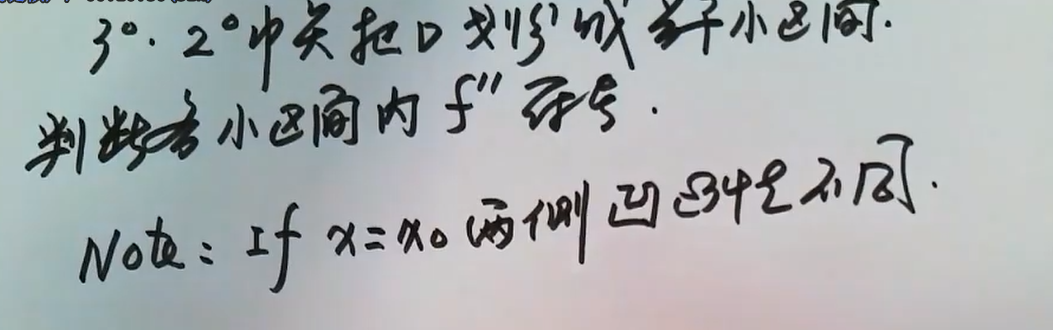 3°. 2°中点把D划分成若干小区间.
判断各小区间内 f″ 符号.
Note: If x=x₀ 两侧凹凸性不同.